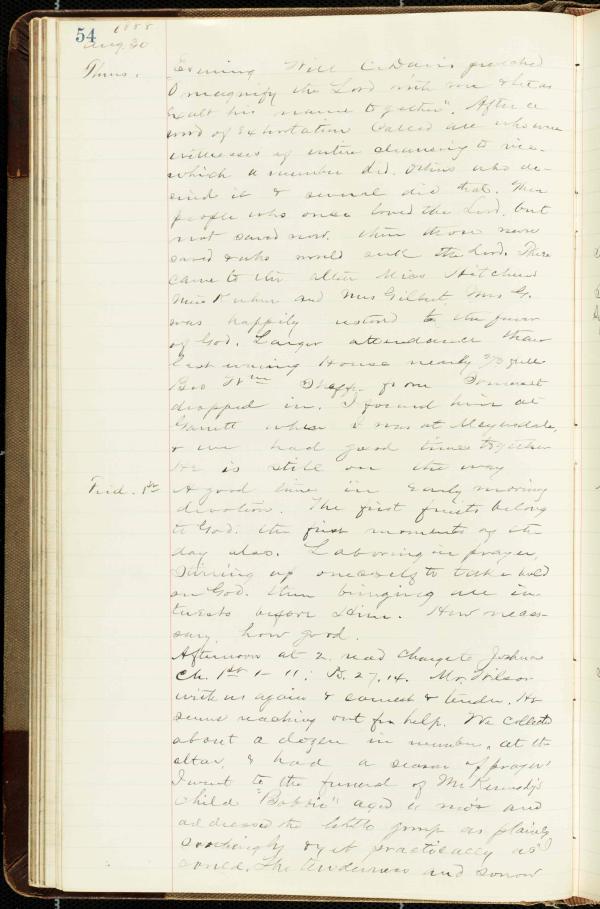 54 1888
Aug. 30
Thurs. Evening Will C. Davis preached
O magnify the Lord with me & let us
exalt his name together". After a
word of Exhortation Called all who were
witnesses of entire cleansing to rise.
which a number did. Others who de-
sired it & several did that. Then
people who once loved the Lord, but
not saved now. then those never
saved & who would seek the Lord. There
came to the alter Miss
Miss and Mrs Gilbert, Mrs G.
was happily restored to the favor
of God. Larger attendance than
last evening House nearly 2/3 full
Bro Wm from Somerset
dropped in. I found him at
Garrett when I was at Meyersdale,
& we had good times together
He is still on the way
Frid. 1st A good time in Early morning
devotion. The first fruits belong
to God. the first moments of the
day also. Laboring in prayer,
Stirring up oneself to take hold
on God. then bringing all in-
terests before Him. How neces-
sary, how good.
Afternoon at 2. read charge to Joshua
Ch. 1st 1 - 11; Ps. 27, 14. Mr. Wilson
with us again & earnest & tender. He
seems reaching out for help. We collected
about a dozen in number, at the
altar, & had a season of prayer
I went to the funeral of Mr Kennedy's
Child "Bobbie" aged mo's and
addressed the little group as plainly
searchingly & yet practically as I
could. The tenderness and sorrow